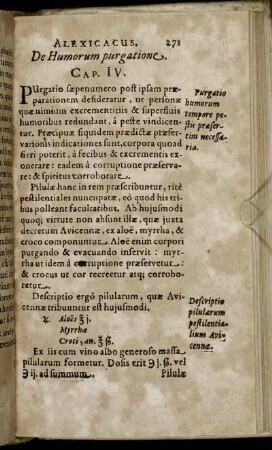 ALEXICACUS. 271
De Humorum purgatione.
CAP. IV.
PUrgatio sæpenumero post ipsam præ-
parationem desideratur, ut personæ
quæ nimium excrementitiis & superfluis
humoribus redundant, à peste vindicen-
tur. Præcipuæ siquidem prædictæ præser-
vationis indicationes sunt, corpora quoad
fieri poterit, à fecibus & excrementis exo-
nerare: eadem à corruptione præserva-
re: & spiritus corroborare.
Purgatio
humorum
tempore pe-
stis præser-
tim necessa-
ria.
Pilulæ hanc in rem præscribuntur, ritè
pestilentiales nuncupatæ, eò quod his tri-
bus polleant facultatibus. Ab hujusmodi
quoq; virtute non absunt illæ, quæ juxta
decretum Avicennæ, ex aloë, myrrha, &
croco componuntur. Aloë enim corpori
purgando & evacuando inservit: myr-
rha ut idem à corruptione præservetur:
& crocus ut cor recreetur atq; corrobo-
retur.
Descriptio ergò pilularum, quæ Avi-
cennæ tribuuntur est hujusmodi,
Descriptio
pilularum
pestilentia-
lium Avi-
cennæ.
♃. Aloës ℥ j.
Myrrhæ
Croci, an. ℥ ß.
Ex iis cum vino albo generoso massa
pilularum formetur. Dosis erit ℈ j. ß. vel
℈ ij. ad summum. Pilulæ